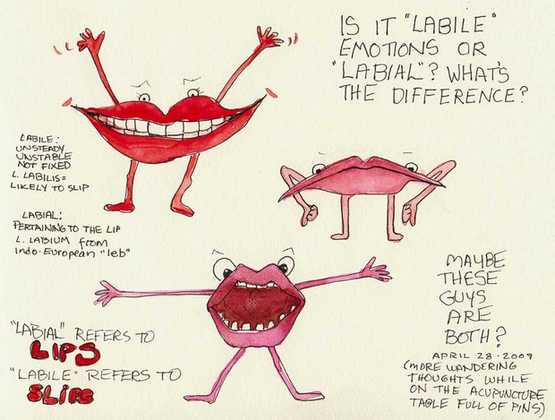 IS IT "LABILE"
EMOTIONS OR
"LABIAL"? WHAT'S
THE DIFFERENCE?
LABILE:
UNSTEADY
UNSTABLE
NOT FIXED
L. LABILIS =
LIKELY TO SLIP
LABIAL:
PERTAINING TO THE LIP
L. LABIUM from
Indo-European "leb"
"LABIAL" REFERS TO
LIPS
"LABILE" REFERS TO
SLIPS
MAYBE
THESE
GUYS
ARE
BOTH?
APRIL 28·2009
(MORE WANDERING
THOUGHTS WHILE
ON THE ACUPUNCTURE
TABLE FULL OF PINS)